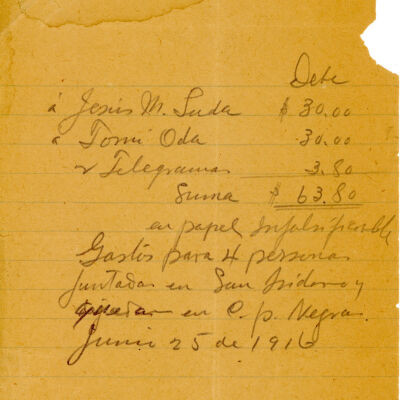 Debe
á Jesús M. Suda $ 30.00
á Tomi Oda 30.00
2 Telegramas 3.80
Suma $ 63.80
en papel Infalsificable
Gastos para 4 personas
juntadas en San Isidoro y
en C. p. Negras.
Junio 25 de 1916